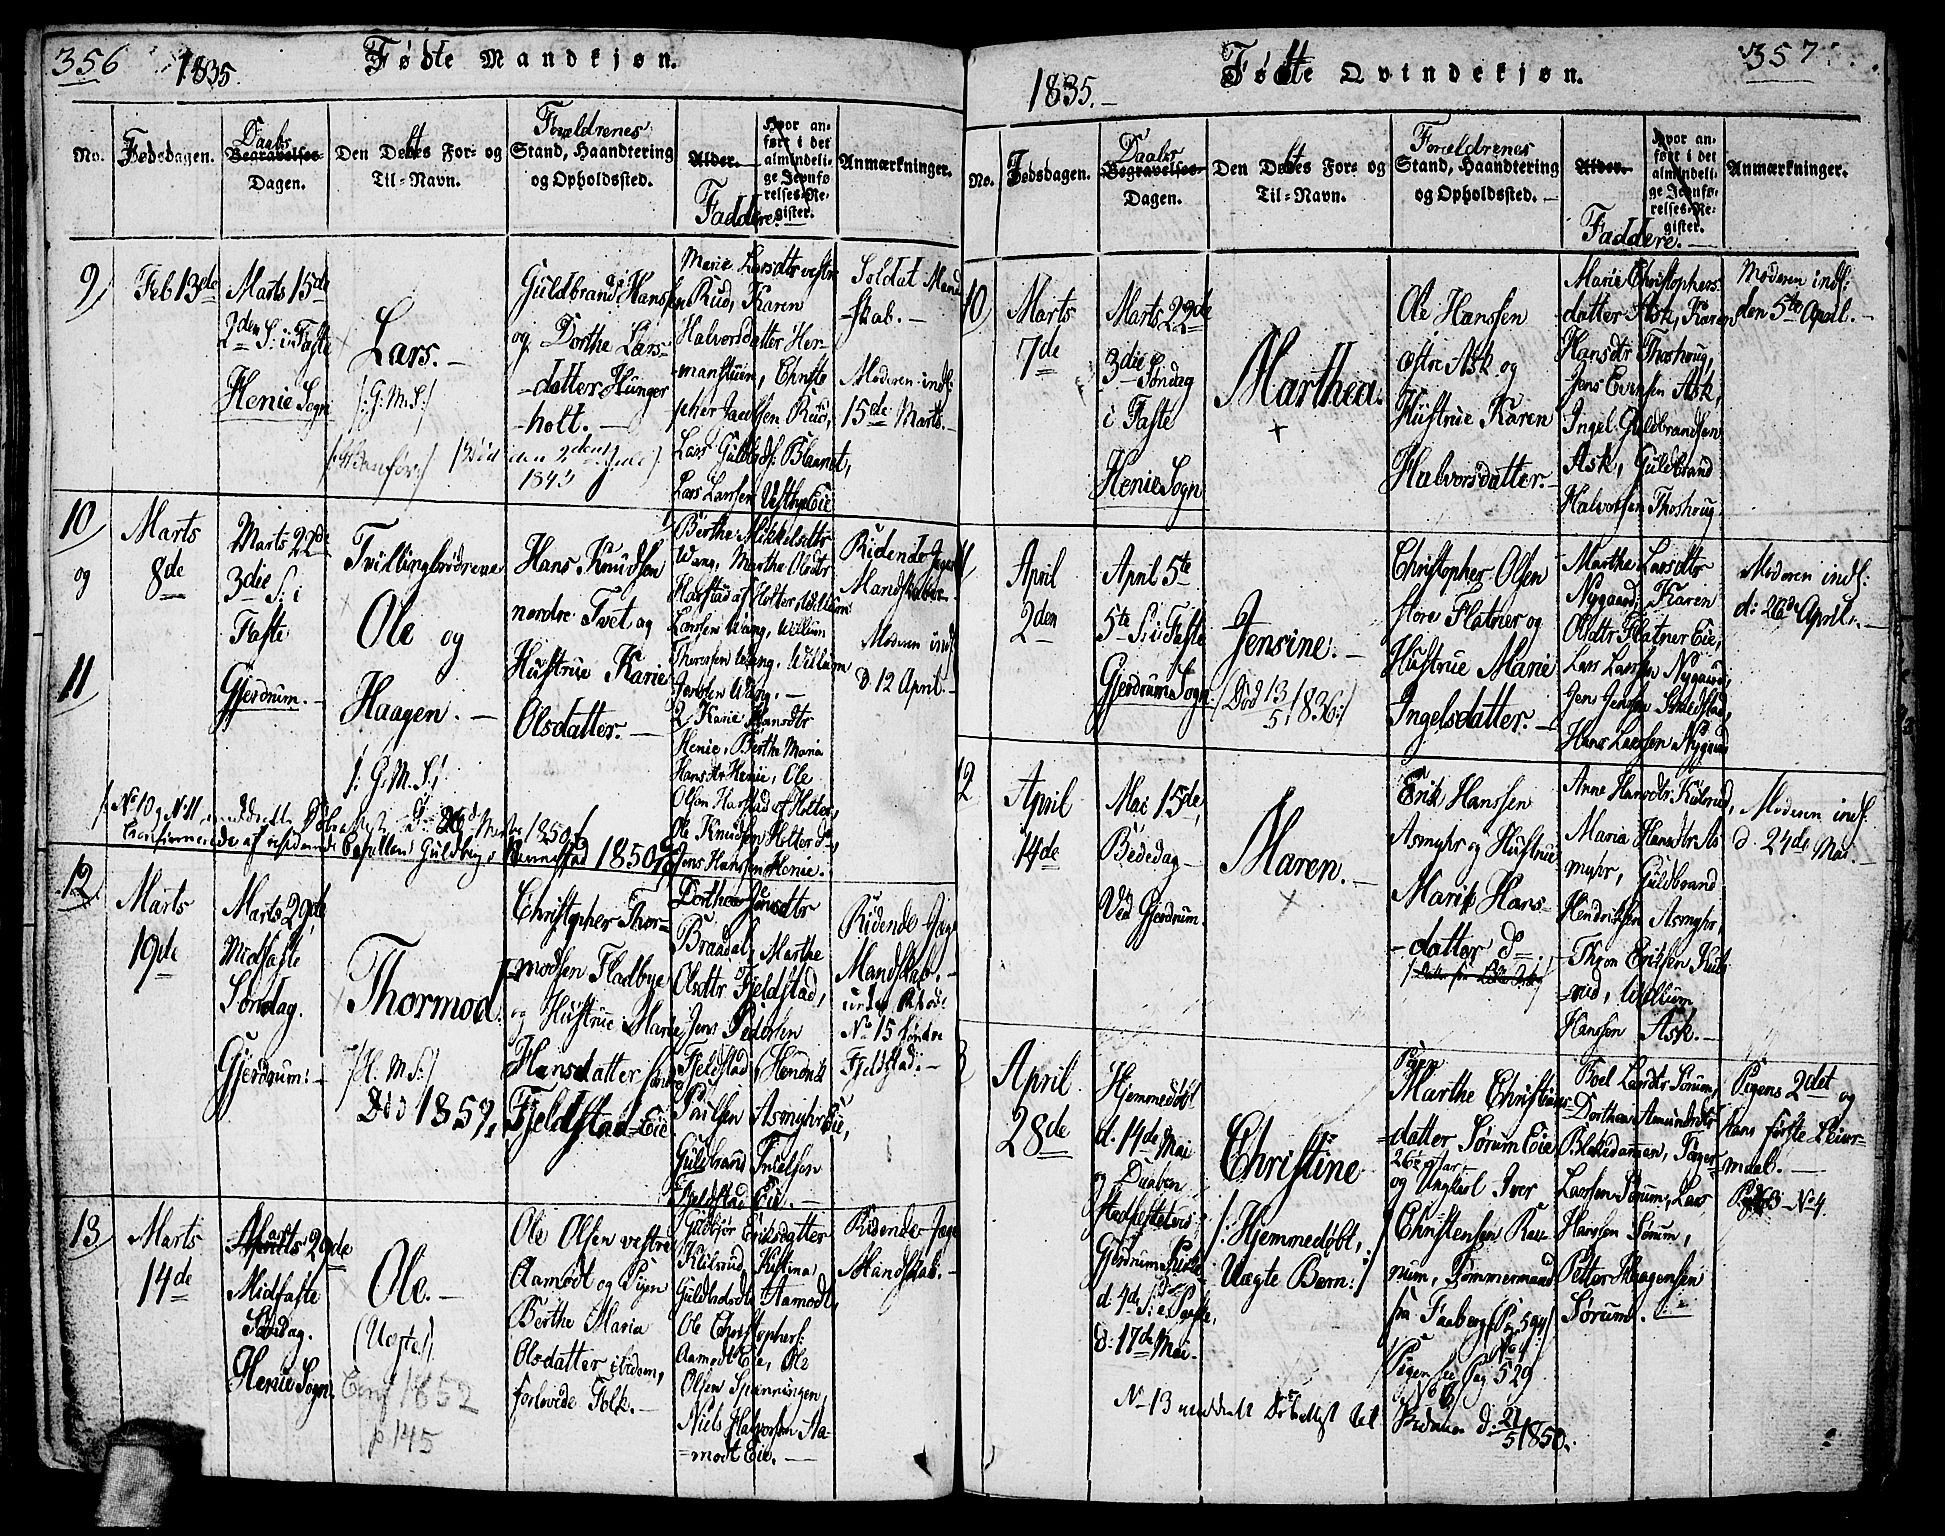 356
1835
Fødte Mandkjøn.
No.
Fødsdagen.
Daabs
Begravelses-
Dagen.
Den Døbtes For- og
Til-Navn.
Forældrenes
Stand, Haandtering
og Opholdssted.
Alder.
Faddere.
Hvor an-
ført i det
almindeli-
ge Jevnfø-
relses-Re-
gister.
Anmærkninger.
9
Feb 13de
Marts 15de
2den S: i Faste
Henie Sogn
Lars.
/: G: M: S:/
Guldbrand Hansen
og Dorthe Lars-
datter Hunger
holt.
den 2den Juli
1843
Marie Larsdtr vestre
Rud, Karen
Halvorsdatter Her-
manstuen, Christo
pher Jacobsen Rud,
Lars Guldbds:
Lars Larsen
Soldat Mand
skab.
Moderen indl:
15de Marts.
10
og
11
Marts
8de
Marts 22de
3die S: i
Faste
Gjerdrum.
Tvillingbrødrene
Ole og
Haagen.
/: G: M: S:/
Hans Knudsen
nordre Tvet og
Hustrue Karie
Olsdatter.
Berthe Mikkelsdtr
Wang, Marthe Olsdtr
Harstad af Holter, Willum
Larsen Wang, Willum
Wang, Willum
Wang.
2 Karie Hansdtr
Henie, Berthe Maria
Hansdtr Henie, Ole
Olsen Harstad af Holter,
Ole Knudsen Holter do,
Jens Hansen Henie.
Ridende Jæger
Mandskaber
Moderen indl
d. 12 April
No 10 og No 11 meddeelte Døbe
1850
Confirmerede af residerende Capellan Guldberg
1850
12
Marts
19de
Marts 29de
Midfaste
Søndag.
Gjerdrum.
Thormod.
/: H: M: S:/
Død 1859.
Christopher Thor-
modsen Fladbye
og Hustrue Marie
Hansdatter
Fjeldstad-Eie
Dorthea Jensdtr
Braadal, Marthe
Olsdtr Fjeldstad,
Jens Pedersen
Fjeldstad, Hendrik
Paulsen Asmyhr Eie,
Guldbrand Truelsen
Fjeldstad Eie.
Ridende Jæg
Mandskab.
under
No 15 søndre
Fjeldstad.
13
Marts
14de
Marts 29de
Midfaste
Søndag.
Henie Sogn.
Ole.
(Uægte)
Conf 1852
p 145
Ole Olsen vestre
Aamodt og Pigen
Berthe Maria
Olsdatter ibidem,
forlovede Folk.
Guldbjør Eriksdatter
Kulsrud, Kistina
Guldbdsdtr Aamodt,
Ole Christophers:
Aamodt Eie, Ole
Olsen Spenningen,
Niels Halvorsen Aa-
modt Eie.
Ridende Jæge
Mandskab.
357
1835.
Fødte Qvindekjøn.
No.
Fødsdagen.
Daabs
Begravelses-
Dagen.
Den Døbtes For- og
Til-Navn.
Forældrenes
Stand, Haandtering
og Opholdssted.
Alder.
Faddere.
Hvor an-
ført i det
almindeli-
ge Jevnfø-
relses-Re-
gister.
Anmærkninger.
10
Marts
7de
Marts 22de
3die Søndag
i Faste
Henie Sogn
Marthea.
Ole Hansen
østre Ask og
Hustrue Karen
Halvorsdatter.
Marie Christophers
datter Ask, Karen
Hansdtr Thoshoug,
Jens Evensen Ask,
Ingel Guldbrandsen
Ask, Guldbrand
Halvorsen Thoshoug
Moderen indl:
den 5te April.
11
April
2den
April 5te
5te S: i Faste
Gjerdrum Sogn
Jensine.
/ Død 13/5 1836:/
Christopher Olsen
store Flatner og
Hustrue Marie
Ingelsdatter.
Marthe Larsdtr
Nygaard, Karen
Olsdtr Flatner Eie,
Lars Larsen Nygaard,
Jens Jensen
Hans Larsen Nygaard
Moderen indl:
d: 26de April.
12
April
14de
Mai 15de,
Bededag
Ved Gjerdrum
Maren.
Erik Hansen
Asmyhr og Hustrue
Marie Hans-
datter do
Anne Hansdtr Kulsrud,
Maria Hansdtr As
myhr, Guldbrand
Hendriksen Asmyhr,
Thron Eriksen Kuls
rud, Willum
Hansen Ask.
Moderen indl:
d. 24de Mai.
April
28de
Hjemmedøbt
d. 14de Mai
og Daaben
stadfæstet
Gjerdrums Kirke
d. 4de S: e. Paaske,
d. 17de Mai.
Christine
/: Hjemmedøbt,:/
Uægte Barn:/
Pigen
Marthe Christians-
datter Sørum Eie
26½ Aar
og Ungkarl Iver
Christensen Rau
num, Tømmermand
fra Faaberg (Pag 594)
No 1
Pigen see Pag 529
No 6
Boel Larsdtr Sørum,
Dorthea Amundsdtr
Blekedammen, Torger
Larsen Sørum, Lars
Hansen Sørum,
Petter Haagensen
Sørum.
Pigens 2det og
hans første Leier-
maal.
No 4
No 13 meddeelt Døbeattest til
d: 21/5 1850.